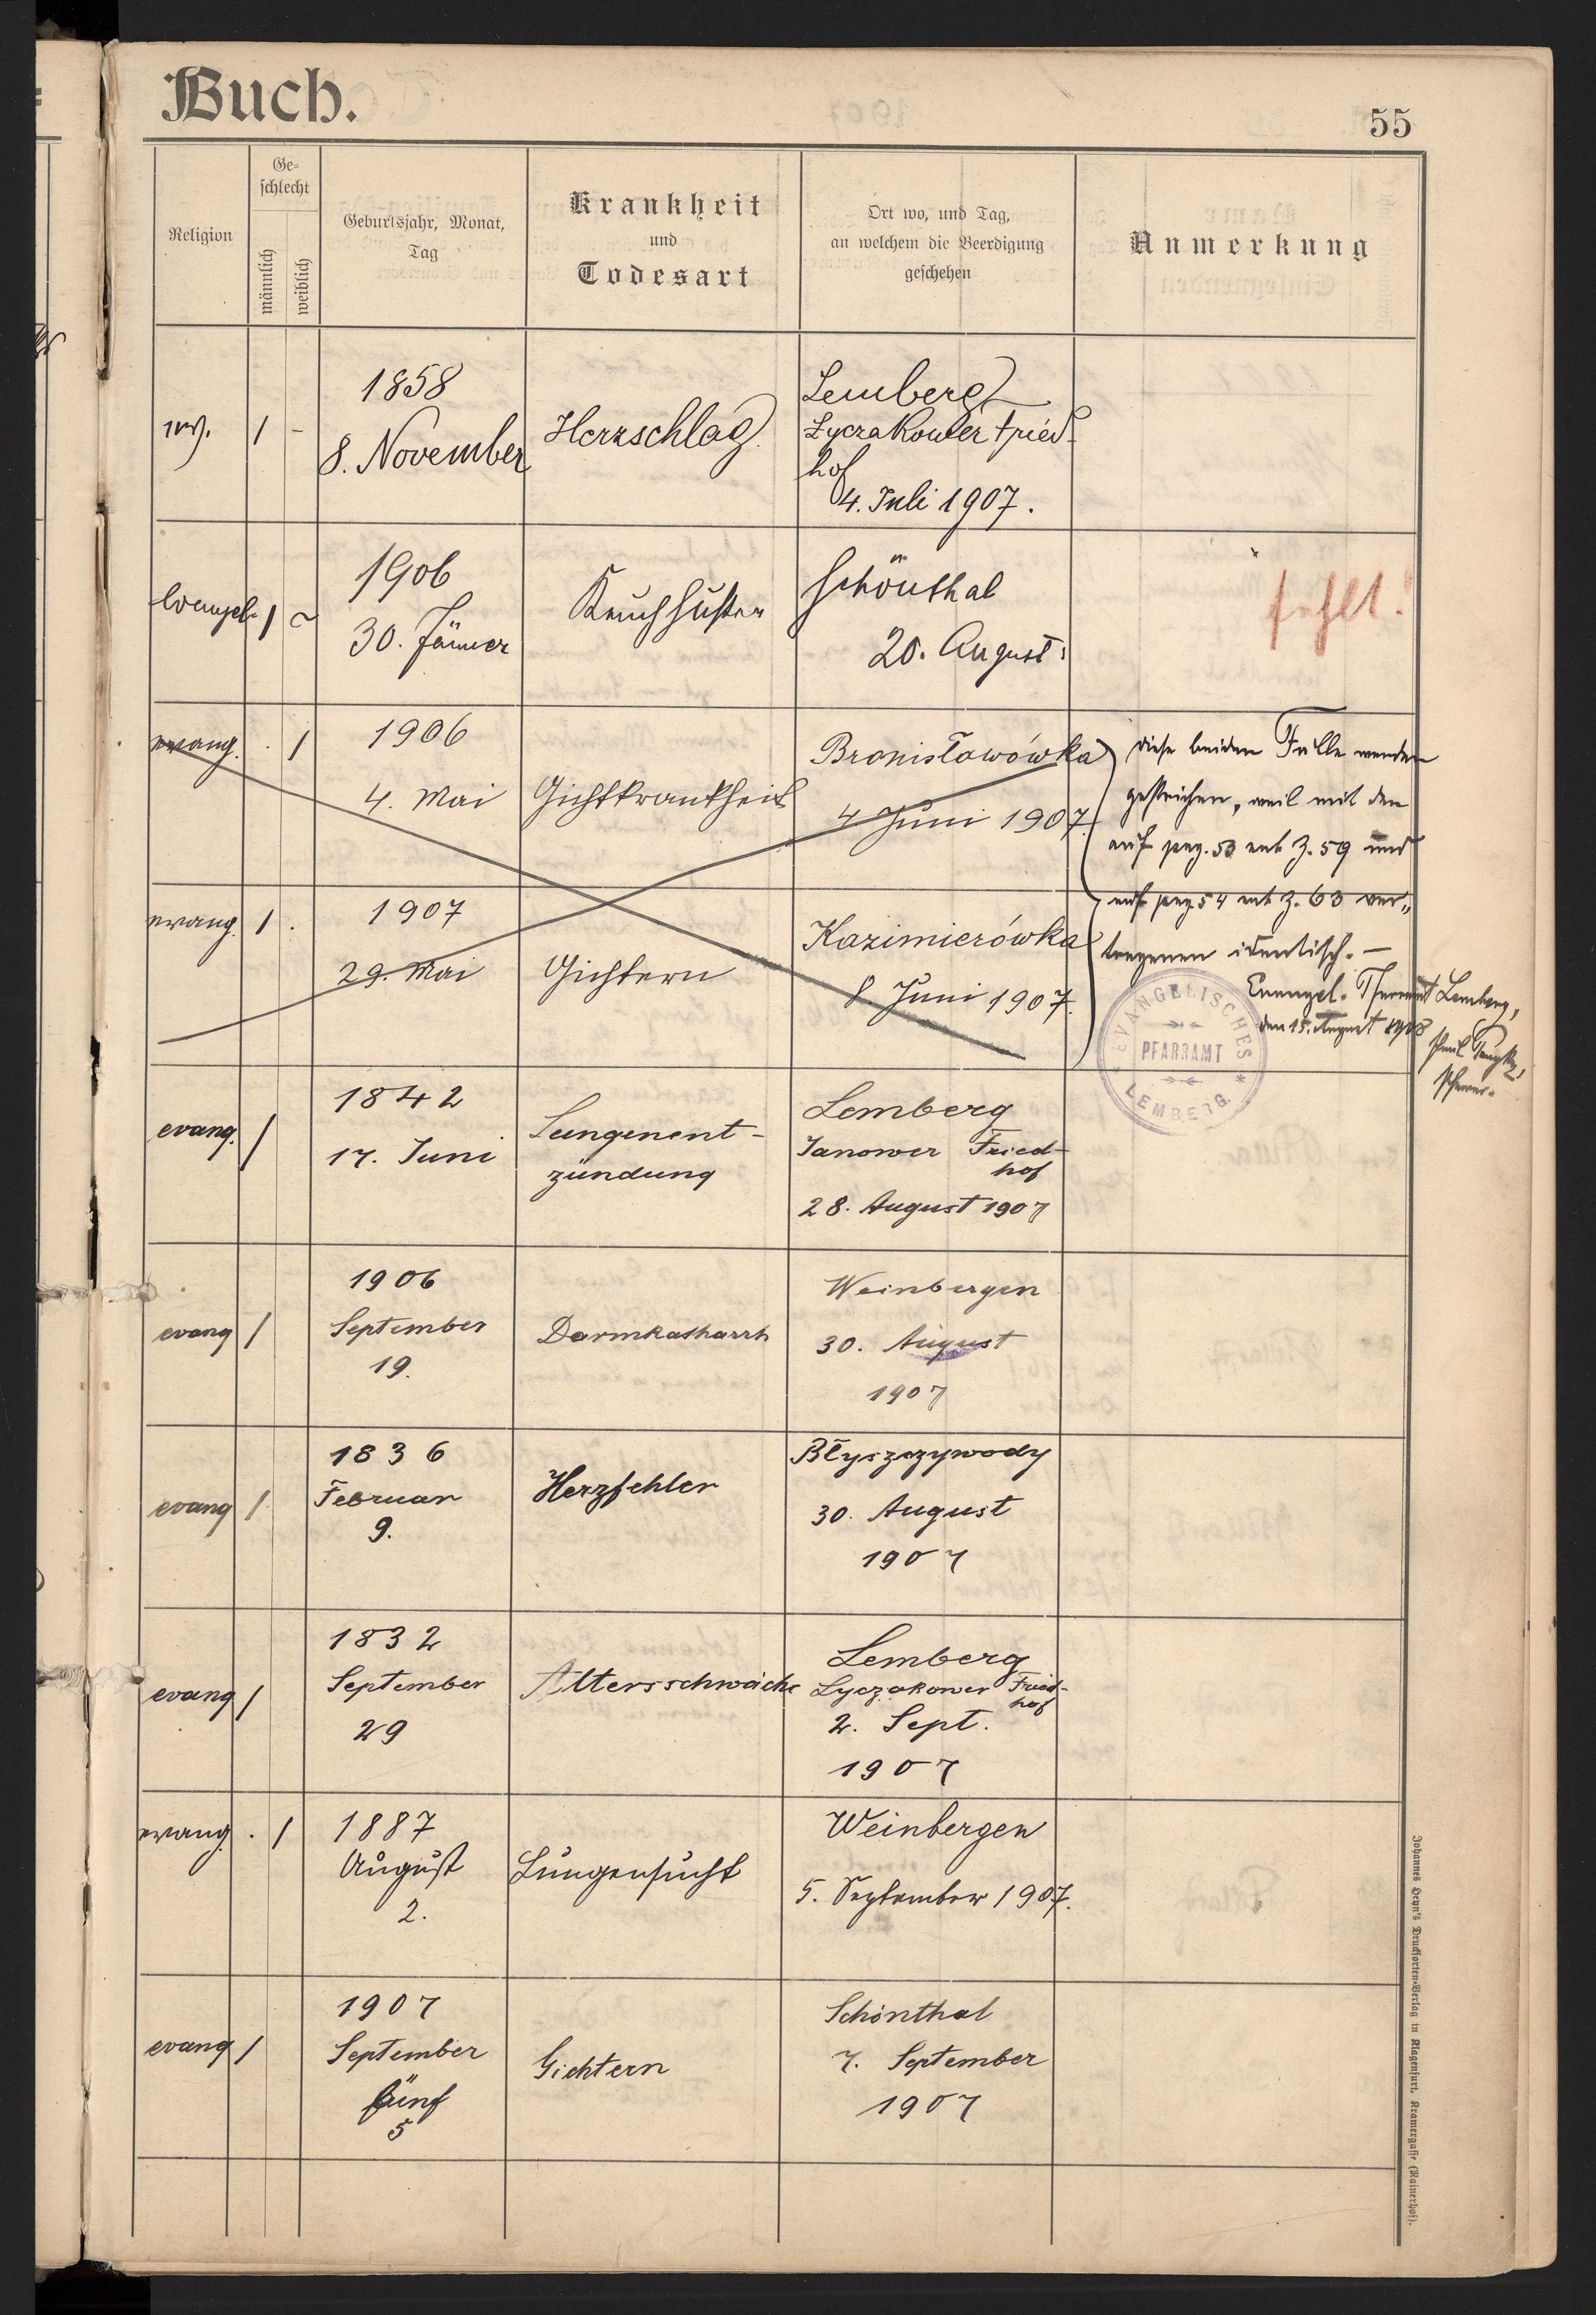 Buch.
55
Religion
Ge-
schlecht
männlich
weiblich
Geburtsjahr, Monat,
Tag
Krankheit
und
Todesart
Ort wo, und Tag,
an welchem die Beerdigung
geschehen
Anmerkung
1 -
1858
8. November
Herzschlag
Lemberg
Łyczakower Fried-
hof
4. Juli 1907.
evangel. 1
1906
30. Jänner
Keuchhusten
Schönthal
20. August
fehlt!
evang. . 1
1906
4. Mai
Gichtkrankheit
Bronisławówka
4 Juni 1907.
diese beiden Fälle werden
gestrichen, weil mit den
auf pag. 53 sub Z. 59 und
auf pag. 54 sub Z. 63 ver-
tragenen identisch. -
Evangel. Pfarramt Lemberg,
den 15. August 1908
EVANGELISCHES
PFARRAMT
* LEMBERG. *
evang. 1 .
1907
29. Mai
Gichtern
Kazimierówka
8 Juni 1907.
evang. 1
1842
17. Juni
Lungenent-
zündung
Lemberg
Janower Fried-
hof
28. August 1907
evang 1
1906
September
19.
Darmkatharrh
Weinbergen
30. August
1907
evang 1
1836
Februar
9.
Herzfehler
Błyszczywody
30. August
1907
evang 1
1832
September
29
Altersschwäche
Lemberg
Lyczakower Fried-
hof
2. Sept.
1907
evang. . 1
1887
August
2.
Lungensucht
Weinbergen
5. September 1907.
evang 1
1907
September
fünf
5
Gichtern
Schönthal
7. September
1907
Johannes Heyn's Drucksorten-Verlag in Klagenfurt, Kramergasse (Rainerhof).